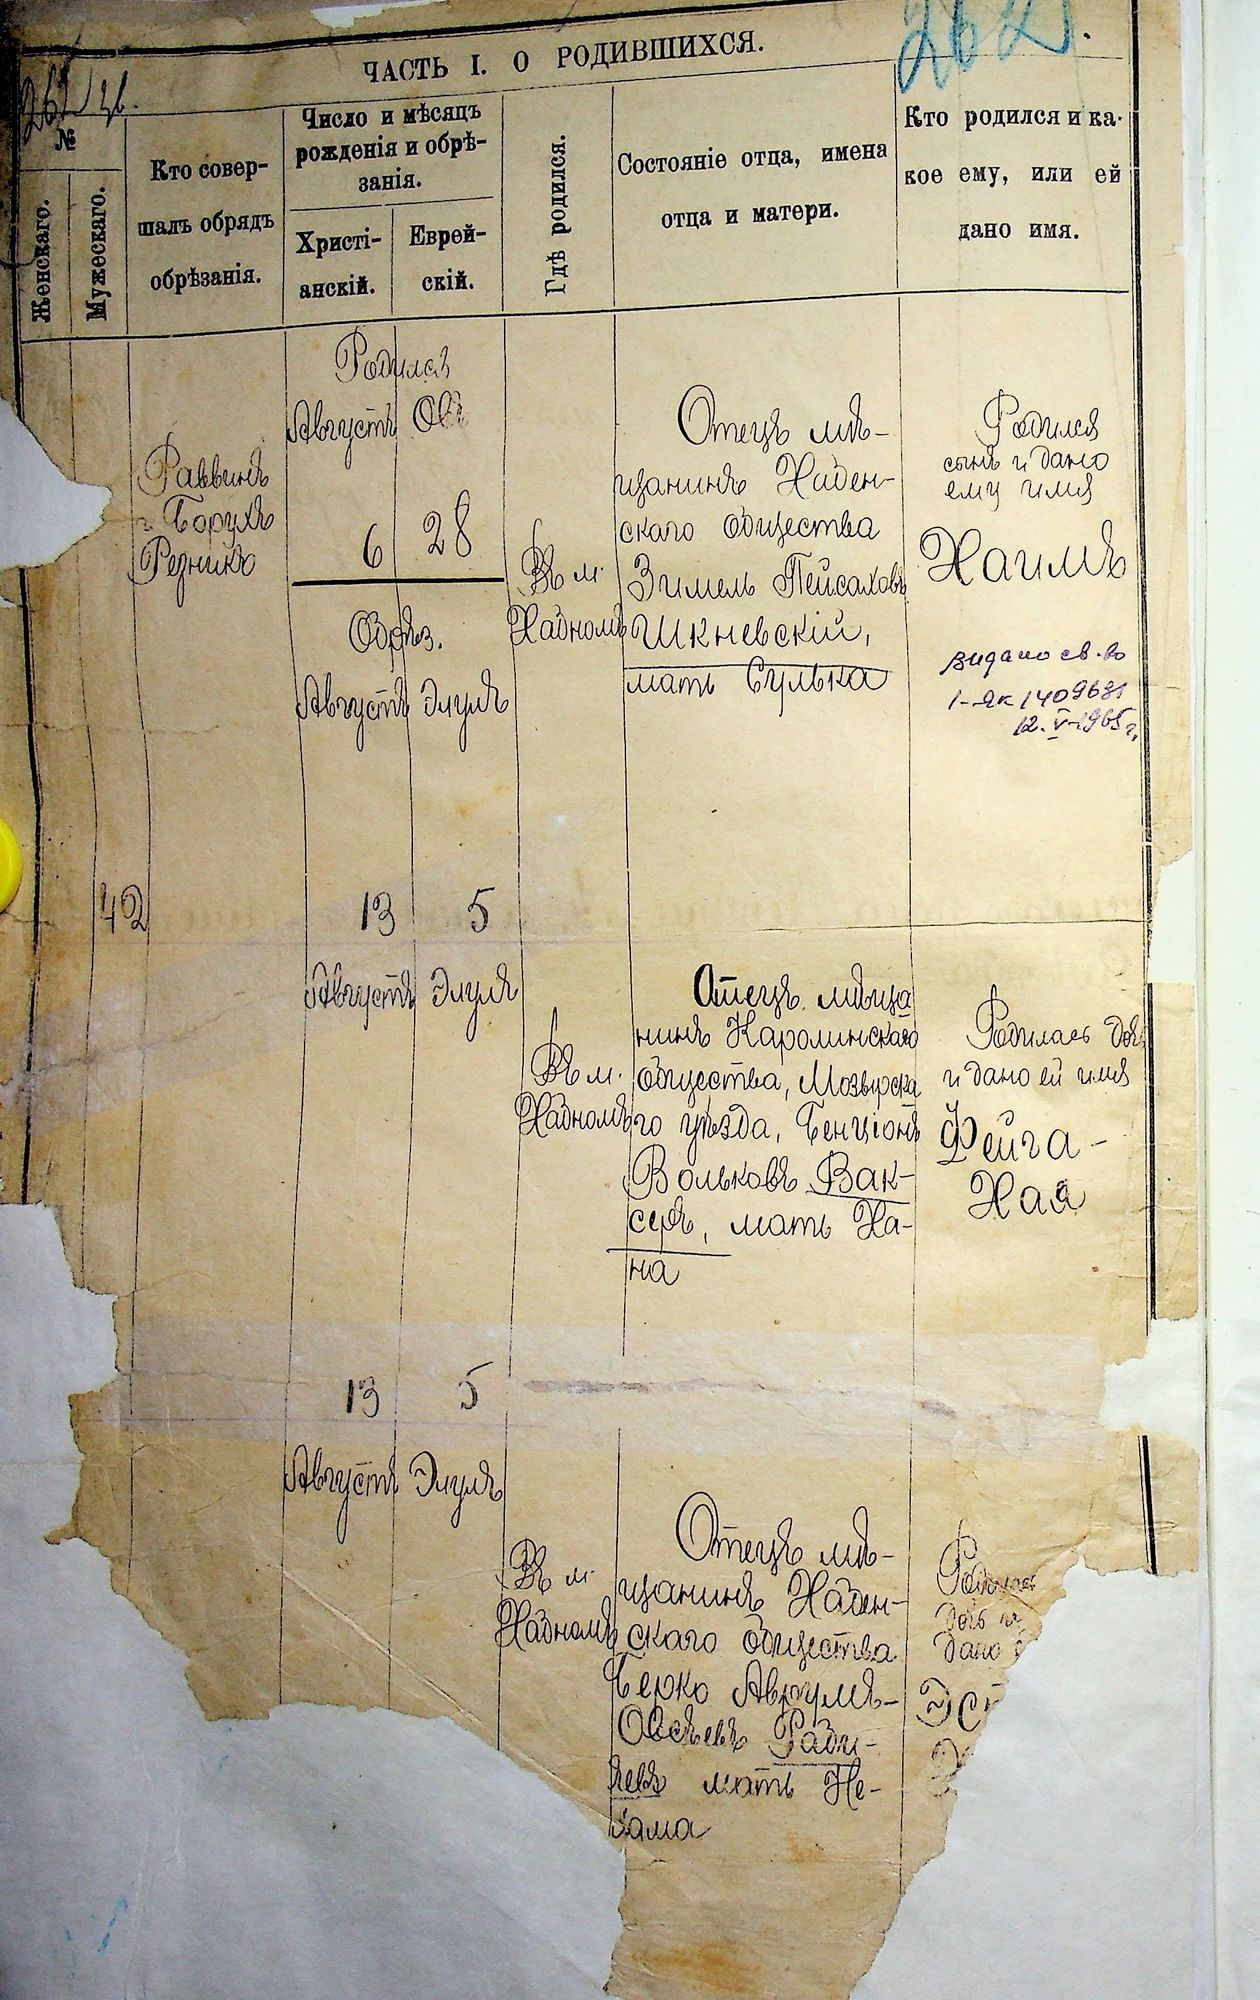 ЧАСТЬ I. О РОДИВШИХСЯ.
262
№
Женскаго.
Мужескаго.
Кто совер-
шалъ обрядъ
обрѣзанія.
Число и мѣсяцъ
рожденія и обрѣ-
занія.
Христі-
анскій.
Еврей-
скій.
Гдѣ родился.
Состояніе отца, имена
отца и матери.
Кто родился и ка-
кое ему, или ей
дано имя.
Раввинъ
г. Борухъ
Резникъ
Родился
Августъ Овъ
6 28
Обрѣз.
Августъ Элулъ
13 5
Въ м.
Хабномъ
Отецъ мѣ-
щанинъ Хабен-
скаго общества
Зимель Пейсаховъ
Шкневскій,
мать Сулька
Родился
сынъ и дано
ему имя
Хаимъ
видано св-во
I-як 1409631
12.V-1965 г.
42
Августъ Элулъ
13 5
Въ м.
Хабномъ
Отецъ мѣща
нинъ Каролинскаго
общества, Мозырска
го уѣзда, Бенціонъ
Вольковъ Вак-
серъ, мать Ха-
на
Родилась дочь
и дано ей имя
Фейга-
Хая
Августъ Элулъ
Въ м.
Хабномъ
Отецъ мѣ-
щанинъ Хабен-
скаго общества
Берко Аврумъ-
Овсѣевъ
мать Не-
хама
Родилась
дочь и
дано
Эст